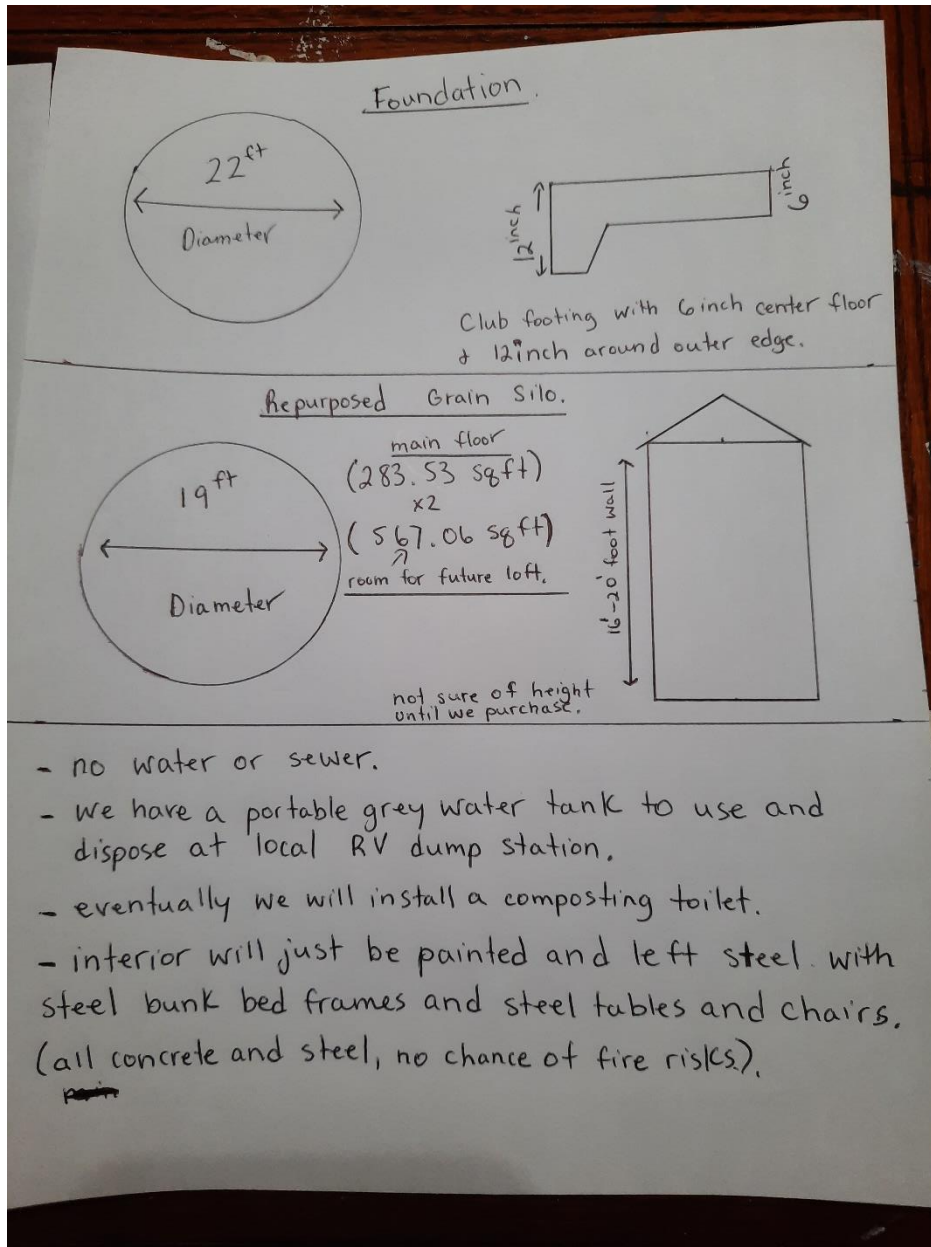 Foundation.
22ft
Diameter
12 inch
6 inch
Club footing with 6 inch center floor
& 12 inch around outer edge.
Repurposed Grain Silo.
19ft
Diameter
main floor
(283.53 sqft)
x2
(567.06 sqft)
room for future loft.
16'-20' foot wall
not sure of height
until we purchase.
- no water or sewer.
- we have a portable grey water tank to use and
dispose at local RV dump station.
- eventually we will install a composting toilet.
- interior will just be painted and left steel. with
steel bunk bed frames and steel tables and chairs.
(all concrete and steel, no chance of fire risks).